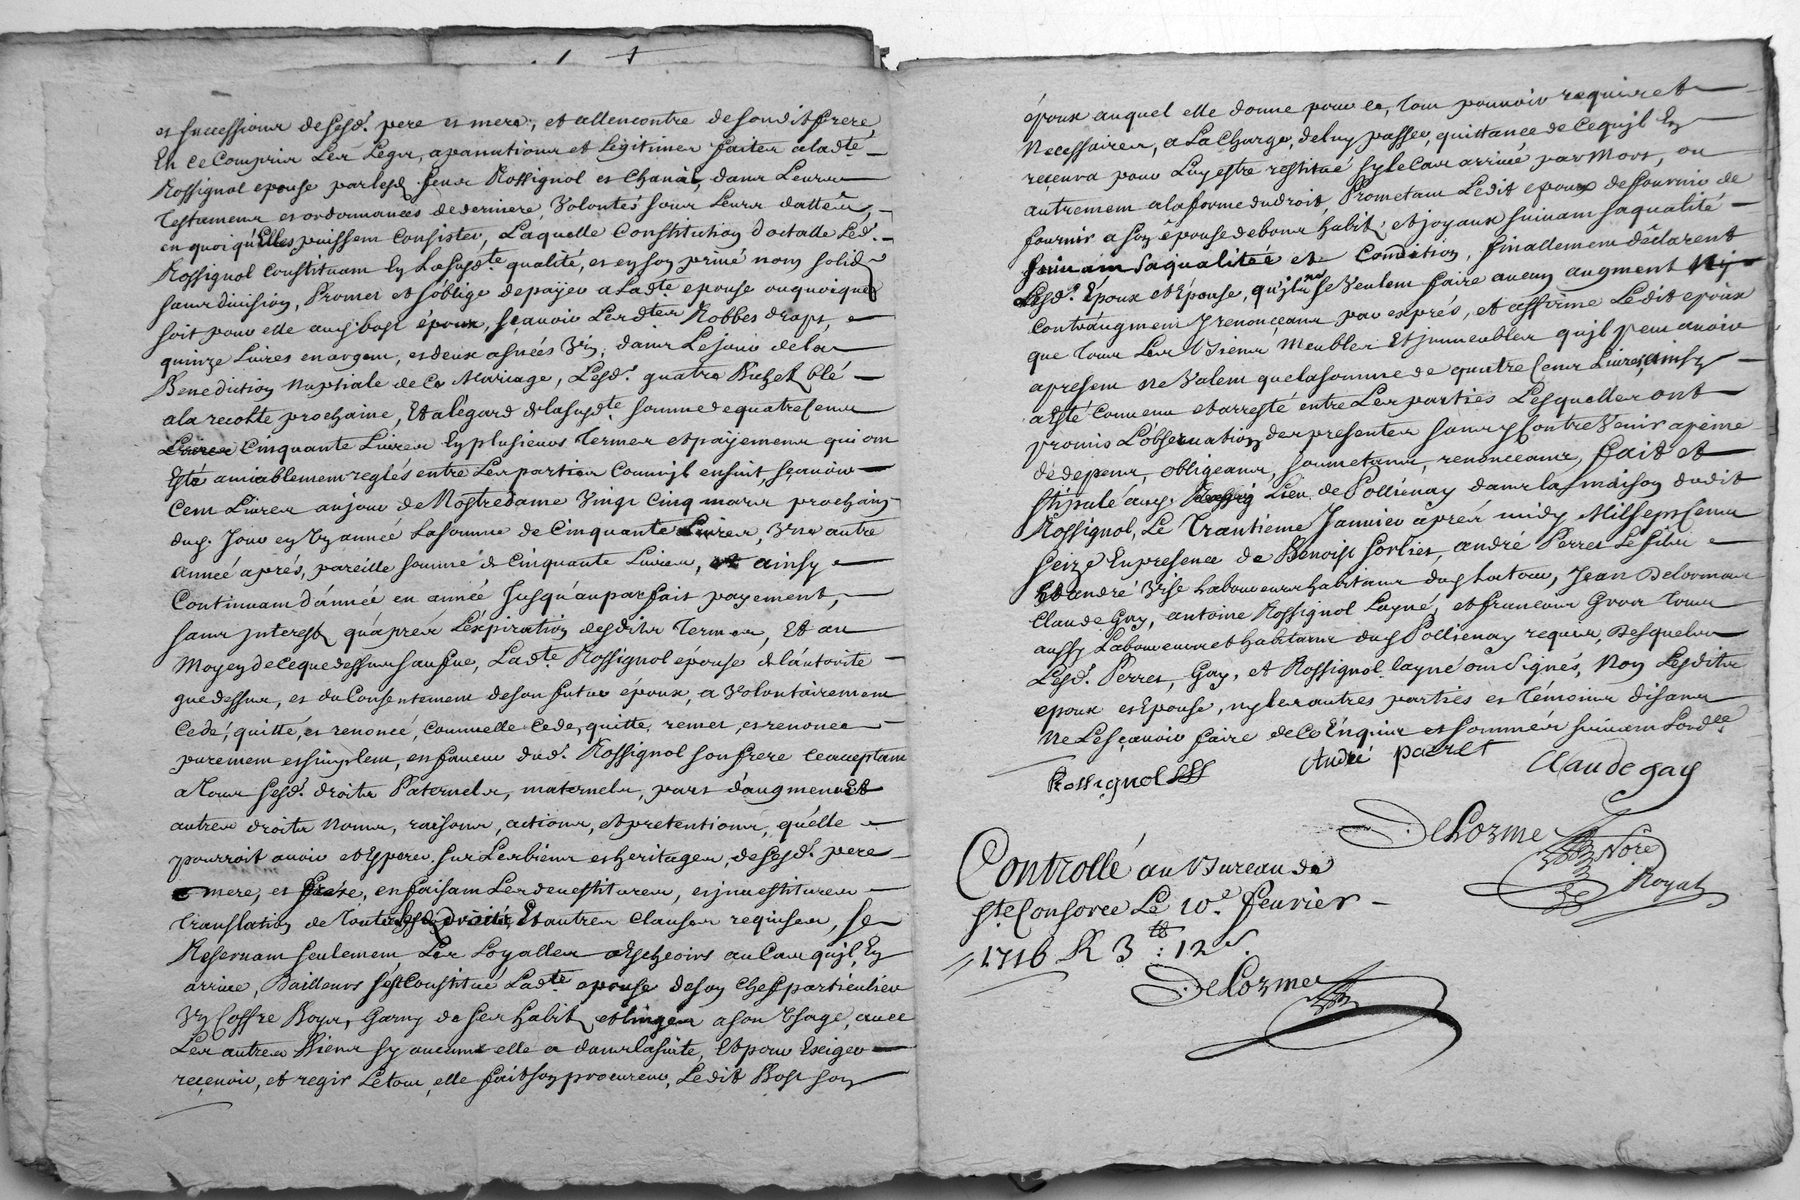 et successions desesd. pere et mere, et allencontre desondit frere,
En ce Compris Les Legs, apanations et Legitimes faites aladte
Rossignol epouse parlesd feus Rossignol et Chanal, dans Leurs
Testamens et ordonnances dederniere Volontés sous Leurs dattes,
en quoi qu'Elles puissent Consister, Laquelle Constitution dotalle Led.
Rossignol Constituant En Lasusdte qualité, et en son privé nom solid
sans division, Promet et s'oblige depaÿer a Ladte epouse ou quoique
soit pour elle aud bost époux, sçavoir Lesdtes Robbes draps,
quinze Livres enargent, et deux asnées Vin, dans Lejour dela
Benediction Nuptiale de Ce Mariage, Lesd. quatre Bichet blé
ala recolte prochaine, Et alégard delasusdte somme de quatre Cens
Cinquante Livres En plusieurs Termes et païjemens qui ont
Esté amiablement reglés entre Les parties Comm'jl ensuit, sçavoir
Cent Livres aujour de Nostredame Vingt Cinq mars prochain
dud. Jour en Un année Lasomme de Cinquante Livres, Une autre
année aprés, pareille somme de Cinquante Livres, et ainsy
Continuant d'année en année Jusqu'auparfait payement,
sans jnterest qu'aprés L'expiration desdits Termes, Et au
Moyen de ceque dessus sauf que, Ladte Rossignol épouse de l'autorité
que dessus, et du Consentement deson futur époux, a Volontairement
Cedé, quitté, et renoncé, Comm'elle Cede, quitte, remet, et renonce
purement et simplem, en faveur dud. Rossignol son frere ceacceptant
a Tous sesd. droits Paternels, maternels, part d'augment Et
autres droits Noms, raisons, actions, et pretentions, qu'elle
pourroit avoir et Esperer sur Les biens et heritages, desesd. pere
et mere, et frere, en faisant Les devestitures, et jnvestitures
Translation de Tout droits, Et autres Clauses requises, se
Reservant seulement Les Loyalles Escheoirs au Cas qu'jl En
arrive, D'ailleurs s'est Constitué Ladte epouse deson Chef particulier
Un Coffre Boys, Garny de ses habit et linges a son Usage, avec
Les autres Biens sy aucuns elle a dans lasuite, Et pour Exiger
reçevoir, et regir Letout, elle fait son procureur, Ledit Bost son
époux auquel elle donne pour ce, Tout pouvoir requis et
Necessaires, a LaCharge, deluy passer, quittance de Cequ'jl En
reçevra pour Luy estre restitué sy le Cas arrive par Mort, ou
autrement alaforme dudroit, Prometant Ledit epoux de fournir de
fournir a son épouse de bons habit, et joyaux suivant saqualité
suivant Saqualiteé et Condition, finallement déclarent
Lesd. Époux et Épouse, qu'jls ne se Veulent faire aucun augment Ny
Contr'augment y renonceant par exprés, et affirme Ledit epoux
que Tous Les Biens Meubles Et jmmeubles qu'jl peut avoir
apresent ne Valent que lasomme de quatre Cens Livres, ainsy
aesté Convenu et arresté entre Les parties Lesquelles ont
promis L'observation des presentes sans y Contrevenir apeine
de depens, obligeans, soumetans, renonceans, fait et
stipulé aud. Lieu de Pollienay dans la maison dudit
Rossignol, Le Trantieme Janvier aprés midy MilSeptCens
seize Enpresence de Benoist sorlier, andré Perret Le fils
Et andré Vise Laboureurs habitans dud, Jean Delorme
Claude Gay, antoine Rossignol Layné, et françois Gros Tous
aussy Laboureurs et habitans dud Pollienay requis, Desquels
Lesd. Perret, Gay, et Rossignol layné ont Signés, Non Lesdits
epoux et Epouse, ny les autres parties et Témoins disans
ne Lesçavoir faire de ce Enquis et sommés suivant Lordce
Rossignol
André paeret
Claude gay
DeLorme
Nore
Royal
Controllé au Bureau de
Ste Consorce Le 10e fevrier
1716 R 3tt : 12s.
DeLorme